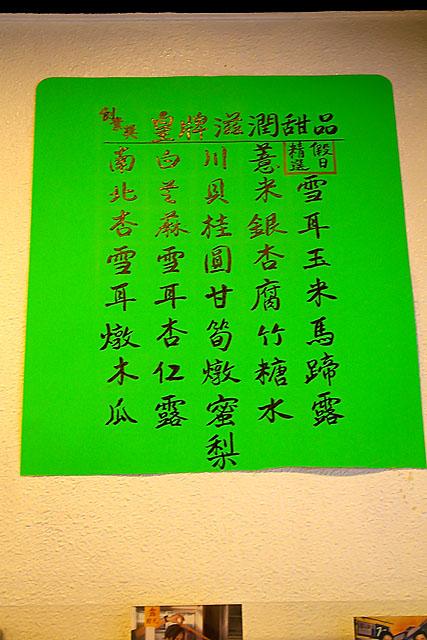 皇牌滋潤甜品
假日
精選
雪耳玉米馬蹄露
薏米銀杏腐竹糖水
川貝桂圓甘筍燉蜜梨
白芝蔴雪耳杏仁露
南北杏雪耳燉木瓜